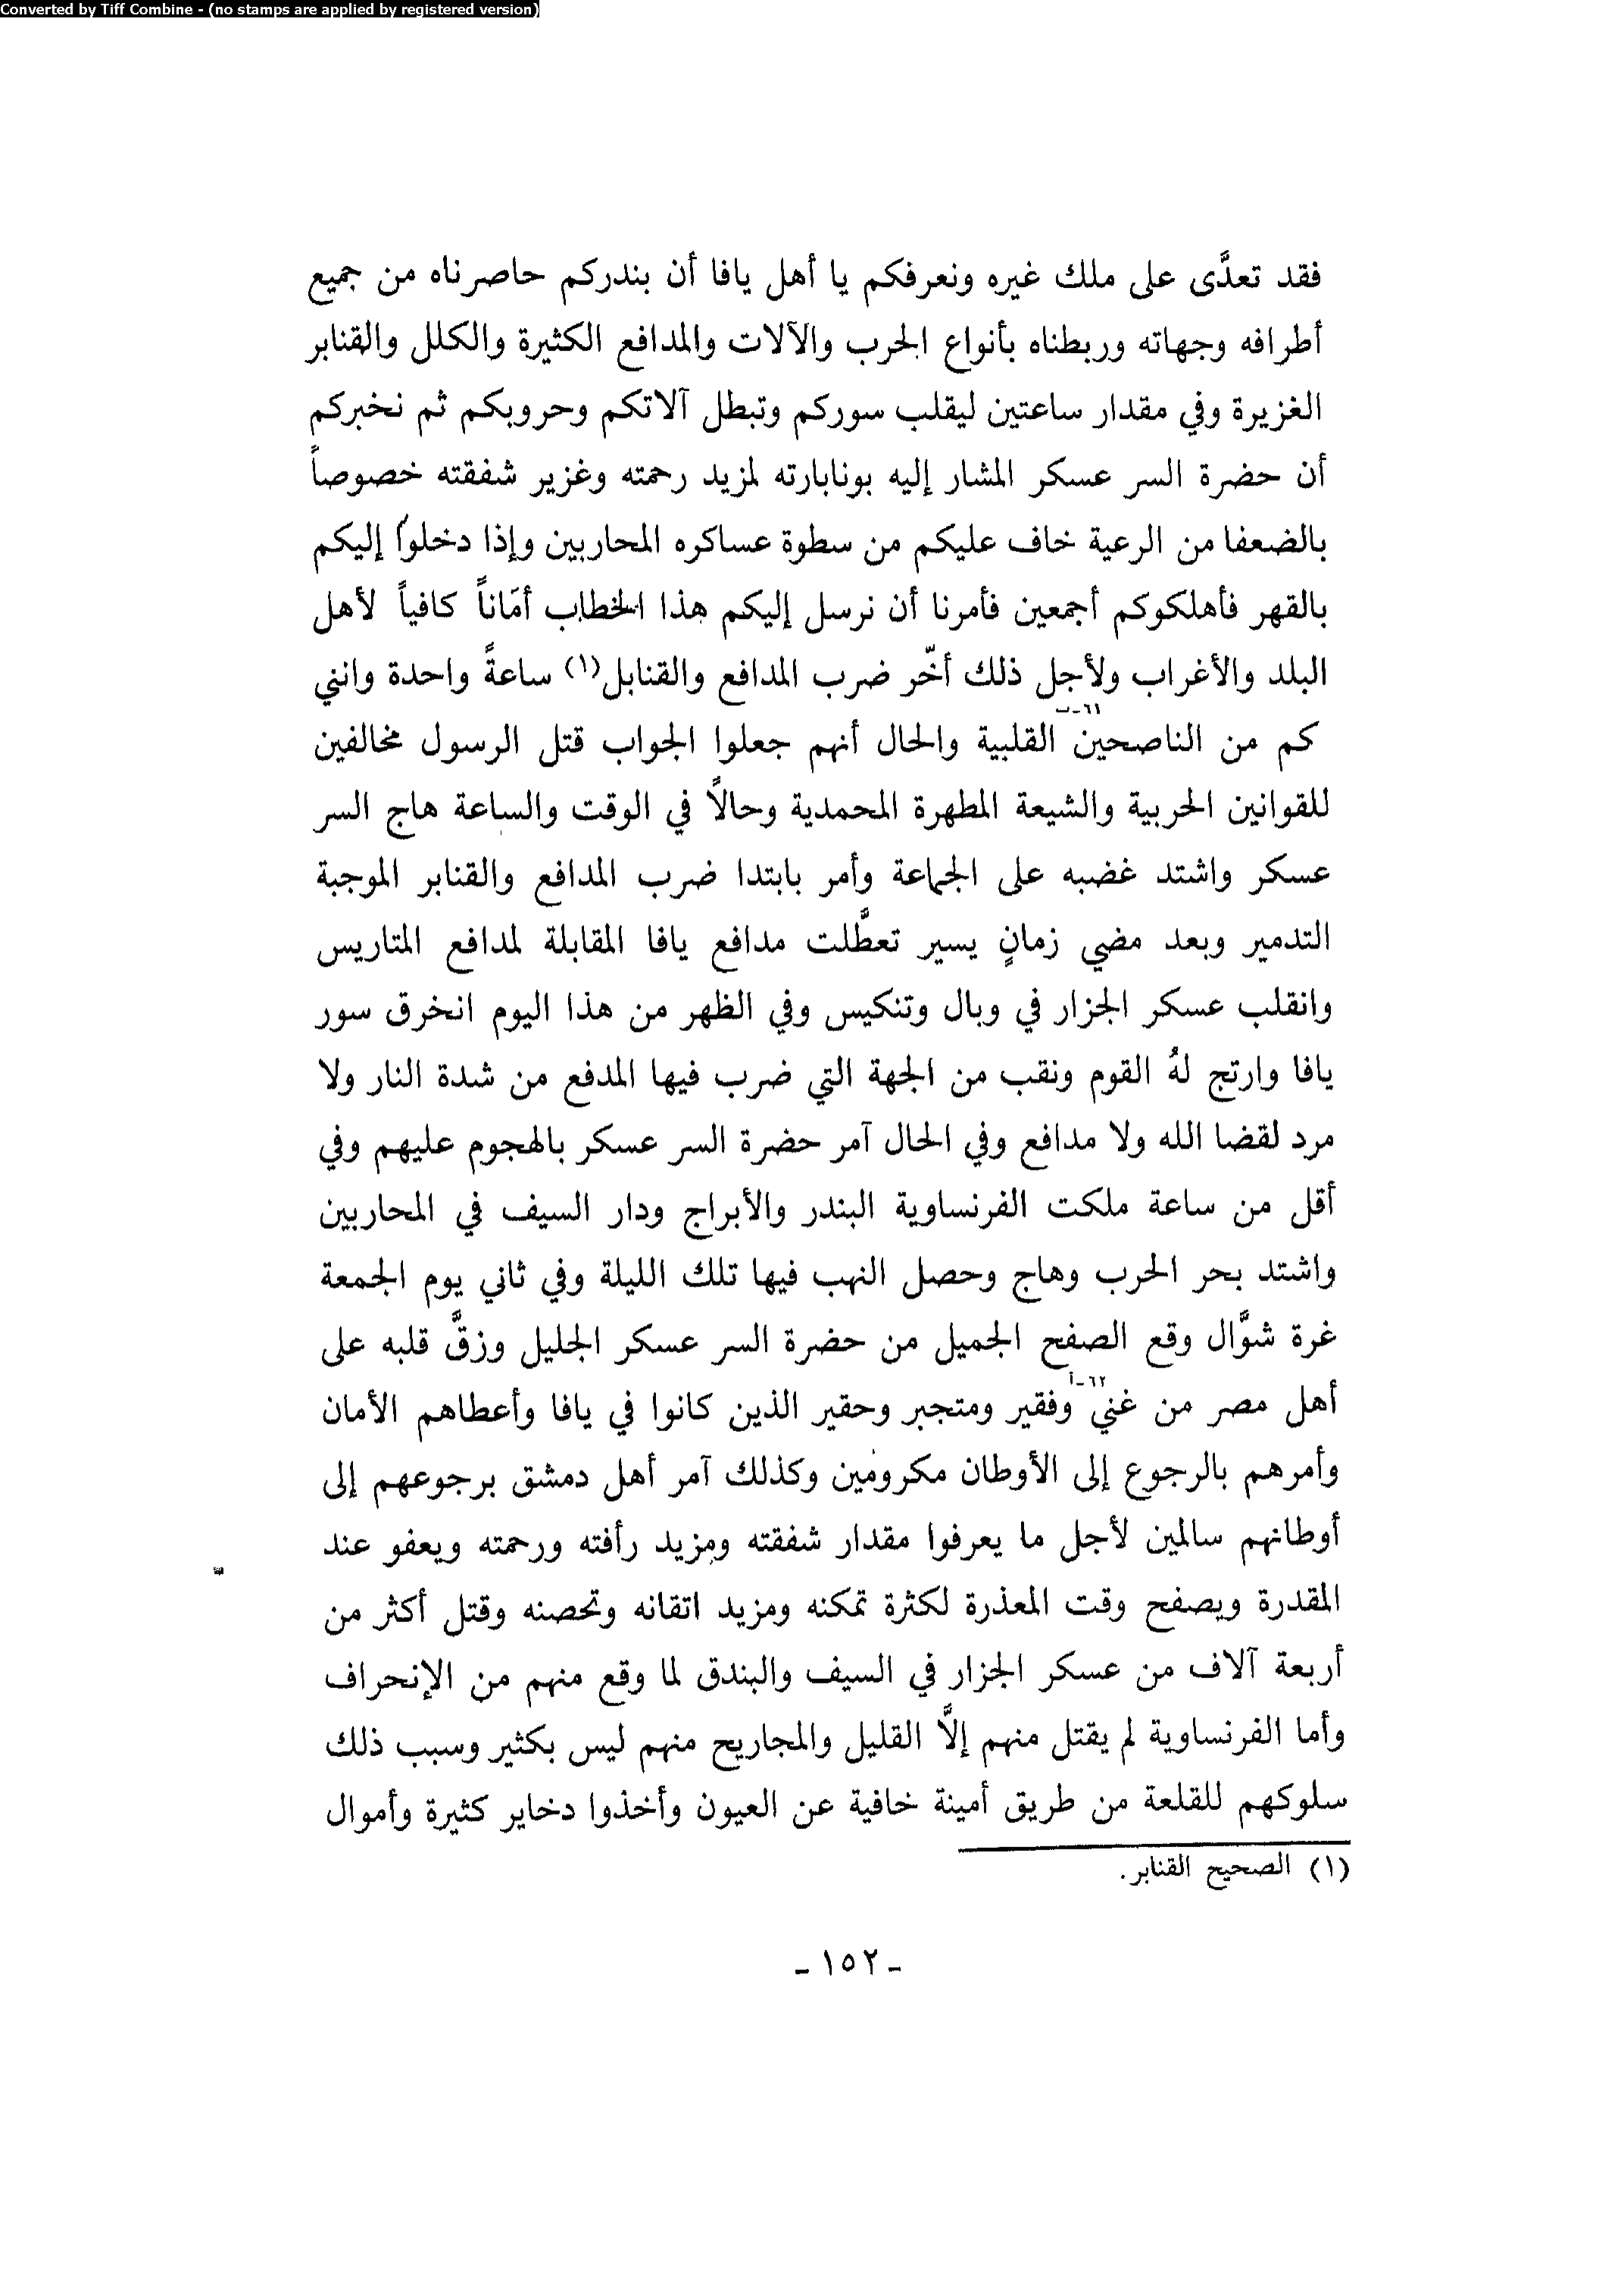 Converted by Tiff Combine - (no stamps are applied by registered version)
فقد تعدَّى على ملك غيره ونعرفكم يا أهل يافا أن بندركم حاصرناه من جميع
أطرافه وجهاته وربطناه بأنواع الحرب والآلات والمدافع الكثيرة والكلل والقنابر
الغزيرة وفي مقدار ساعتين ليقلب سوركم وتبطل آلاتكم وحروبكم ثم نخبركم
أن حضرة السر عسكر المشار إليه بونابارته لمزيد رحمته وغزير شفقته خصوصاً
بالضعفا من الرعية خاف عليكم من سطوة عساكره المحاربين وإذا دخلوا إليكم
بالقهر فأهلكوكم أجمعين فأمرنا أن نرسل إليكم هذا الخطاب أمَاناً كافياً لأهل
البلد والأغراب ولأجل ذلك أخّر ضرب المدافع والقنابل(١) ساعةً واحدة وانني
٦١-ب
كم من الناصحين القلبية والحال أنهم جعلوا الجواب قتل الرسول مخالفين
للقوانين الحربية والشيعة المطهرة المحمدية وحالاً في الوقت والساعة هاج السر
عسكر واشتد غضبه على الجماعة وأمر بابتدا ضرب المدافع والقنابر الموجبة
التدمير وبعد مضي زمانٍ يسير تعطَّلت مدافع يافا المقابلة لمدافع المتاريس
وانقلب عسكر الجزار في وبال وتنكيس وفي الظهر من هذا اليوم انخرق سور
يافا وارتج لهُ القوم ونقب من الجهة التي ضرب فيها المدفع من شدة النار ولا
مرد لقضا الله ولا مدافع وفي الحال آمر حضرة السر عسكر بالهجوم عليهم وفي
أقل من ساعة ملكت الفرنساوية البندر والأبراج ودار السيف في المحاربين
واشتد بحر الحرب وهاج وحصل النهب فيها تلك الليلة وفي ثاني يوم الجمعة
غرة شوَّال وقع الصفح الجميل من حضرة السر عسكر الجليل وزقَّ قلبه على
٦٢-أ
أهل مصر من غني وفقير ومتجبر وحقير الذين كانوا في يافا وأعطاهم الأمان
وأمرهم بالرجوع إلى الأوطان مكرومين وكذلك آمر أهل دمشق برجوعهم إلى
أوطانهم سالمين لأجل ما يعرفوا مقدار شفقته ومزيد رأفته ورحمته ويعفو عند
المقدرة ويصفح وقت المعذرة لكثرة تمكنه ومزيد اتقانه وتحصنه وقتل أكثر من
أربعة آلاف من عسكر الجزار في السيف والبندق لما وقع منهم من الإنحراف
وأما الفرنساوية لم يقتل منهم إلاَّ القليل والمجاريح منهم ليس بكثير وسبب ذلك
سلوكهم للقلعة من طريق أمينة خافية عن العيون وأخذوا دخاير كثيرة وأموال
(١) الصحيح القنابر.
- ١٥٢ -